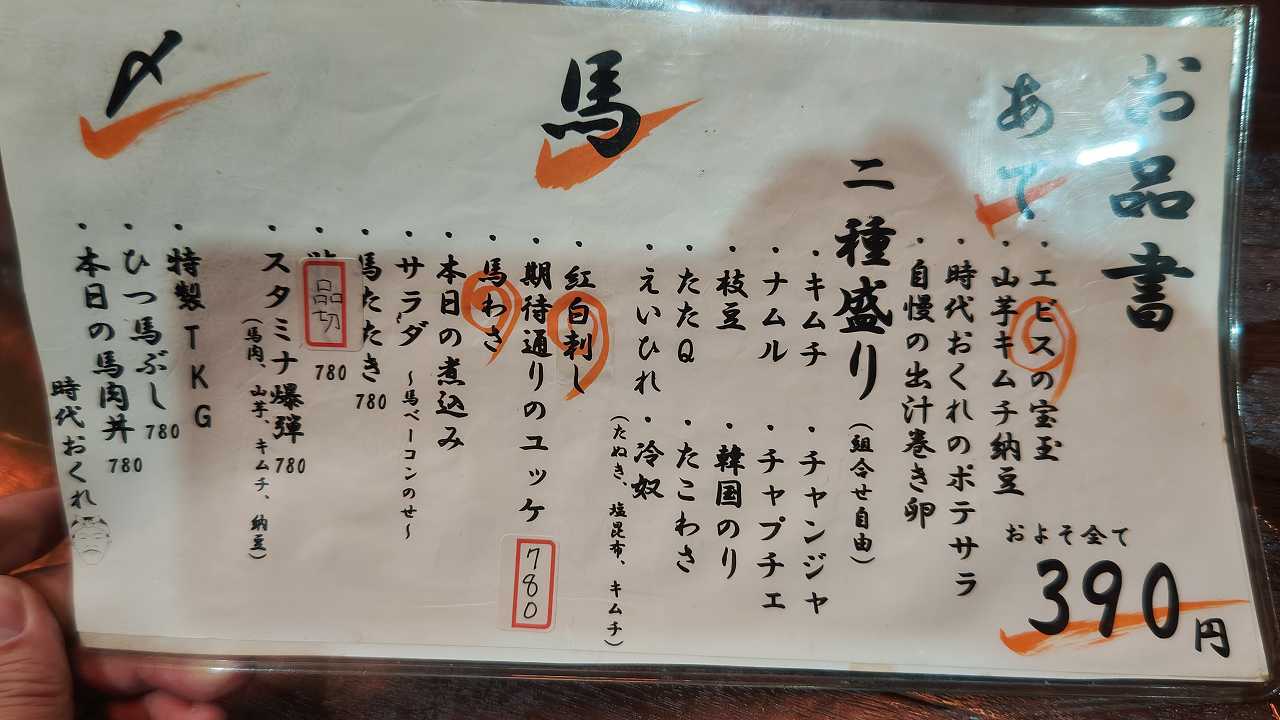 お品書
およそ全て
390円
あて
・エビスの宝玉
・山芋キムチ納豆
・時代おくれのポテサラ
・自慢の出汁巻き卵
二種盛り(組合せ自由)
・キムチ
・チャンジャ
・ナムル
・チャプチェ
・枝豆
・韓国のり
・たたQ
・たこわさ
・えいひれ
・冷奴
(たぬき、塩昆布、キムチ)
馬
・紅白刺し
・期待通りのユッケ
780
・馬わさ
・本日の煮込み
・サラダ ~馬ベーコンのせ~
・馬たたき 780
品切
780
・スタミナ爆弾 780
(馬肉、山芋、キムチ、納豆)
〆
・特製TKG
・ひつ馬ぶし 780
・本日の馬肉丼 780
時代おくれ